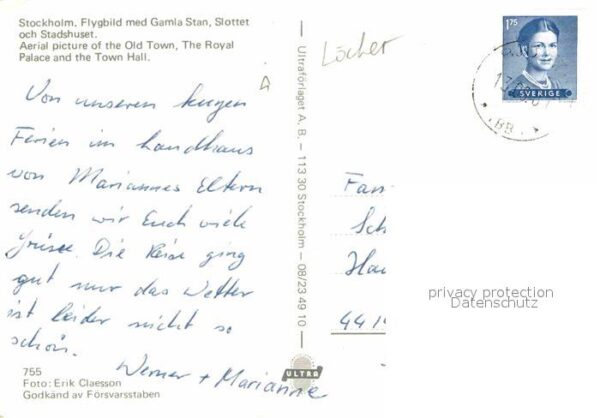 Stockholm. Flygbild med Gamla Stan, Slottet
och Stadshuset.
Aerial picture of the Old Town, The Royal
Palace and the Town Hall.
Von unseren kurzen
Ferien im Landhaus
von Mariannes Eltern
senden wir Euch viele
Grüsse. Die Reise ging
gut nur das Wetter
ist leider nicht so
schön.
Werner + Marianne
755
Foto: Erik Claesson
Godkänd av Försvarsstaben
Ultraförlaget A. B. – 113 30 Stockholm – 08/23 49 10
ULTRA
Löcher
1,75
SVERIGE
BB
Fam
Sch
Ha
441
privacy protection
Datenschutz